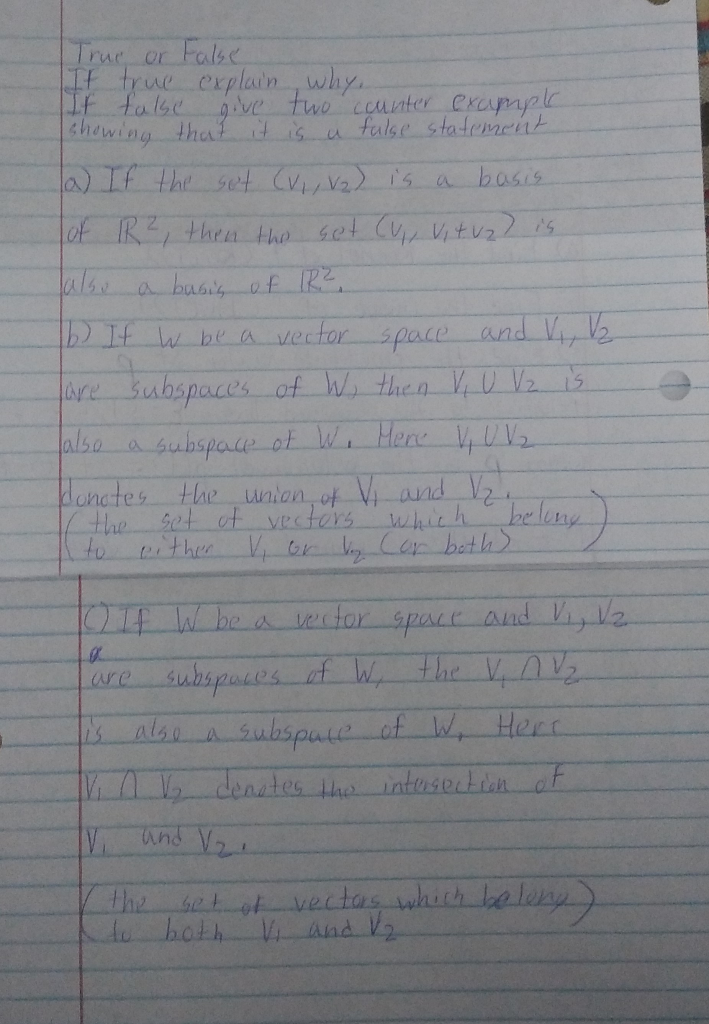 True or False
If true explain why.
If false give two counter example
showing that it is a false statement
a) If the set (V₁, V₂) is a basis
of ℝ², then the set (V₁, V₁+V₂) is
also a basis of ℝ².
b) If W be a vector space and V₁, V₂
are subspaces of W, then V₁ U V₂ is
also a subspace of W. Here V₁ U V₂
donotes the union of V₁ and V₂.
(the set of vectors which belong)
to either V₁ or V₂ (or both)
C) If W be a vector space and V₁, V₂
are subspaces of W, the V₁ ∩ V₂
is also a subspace of W. Here
V₁ ∩ V₂ denotes the intersection of
V₁ and V₂.
(the set of vectors which belong)
to both V₁ and V₂